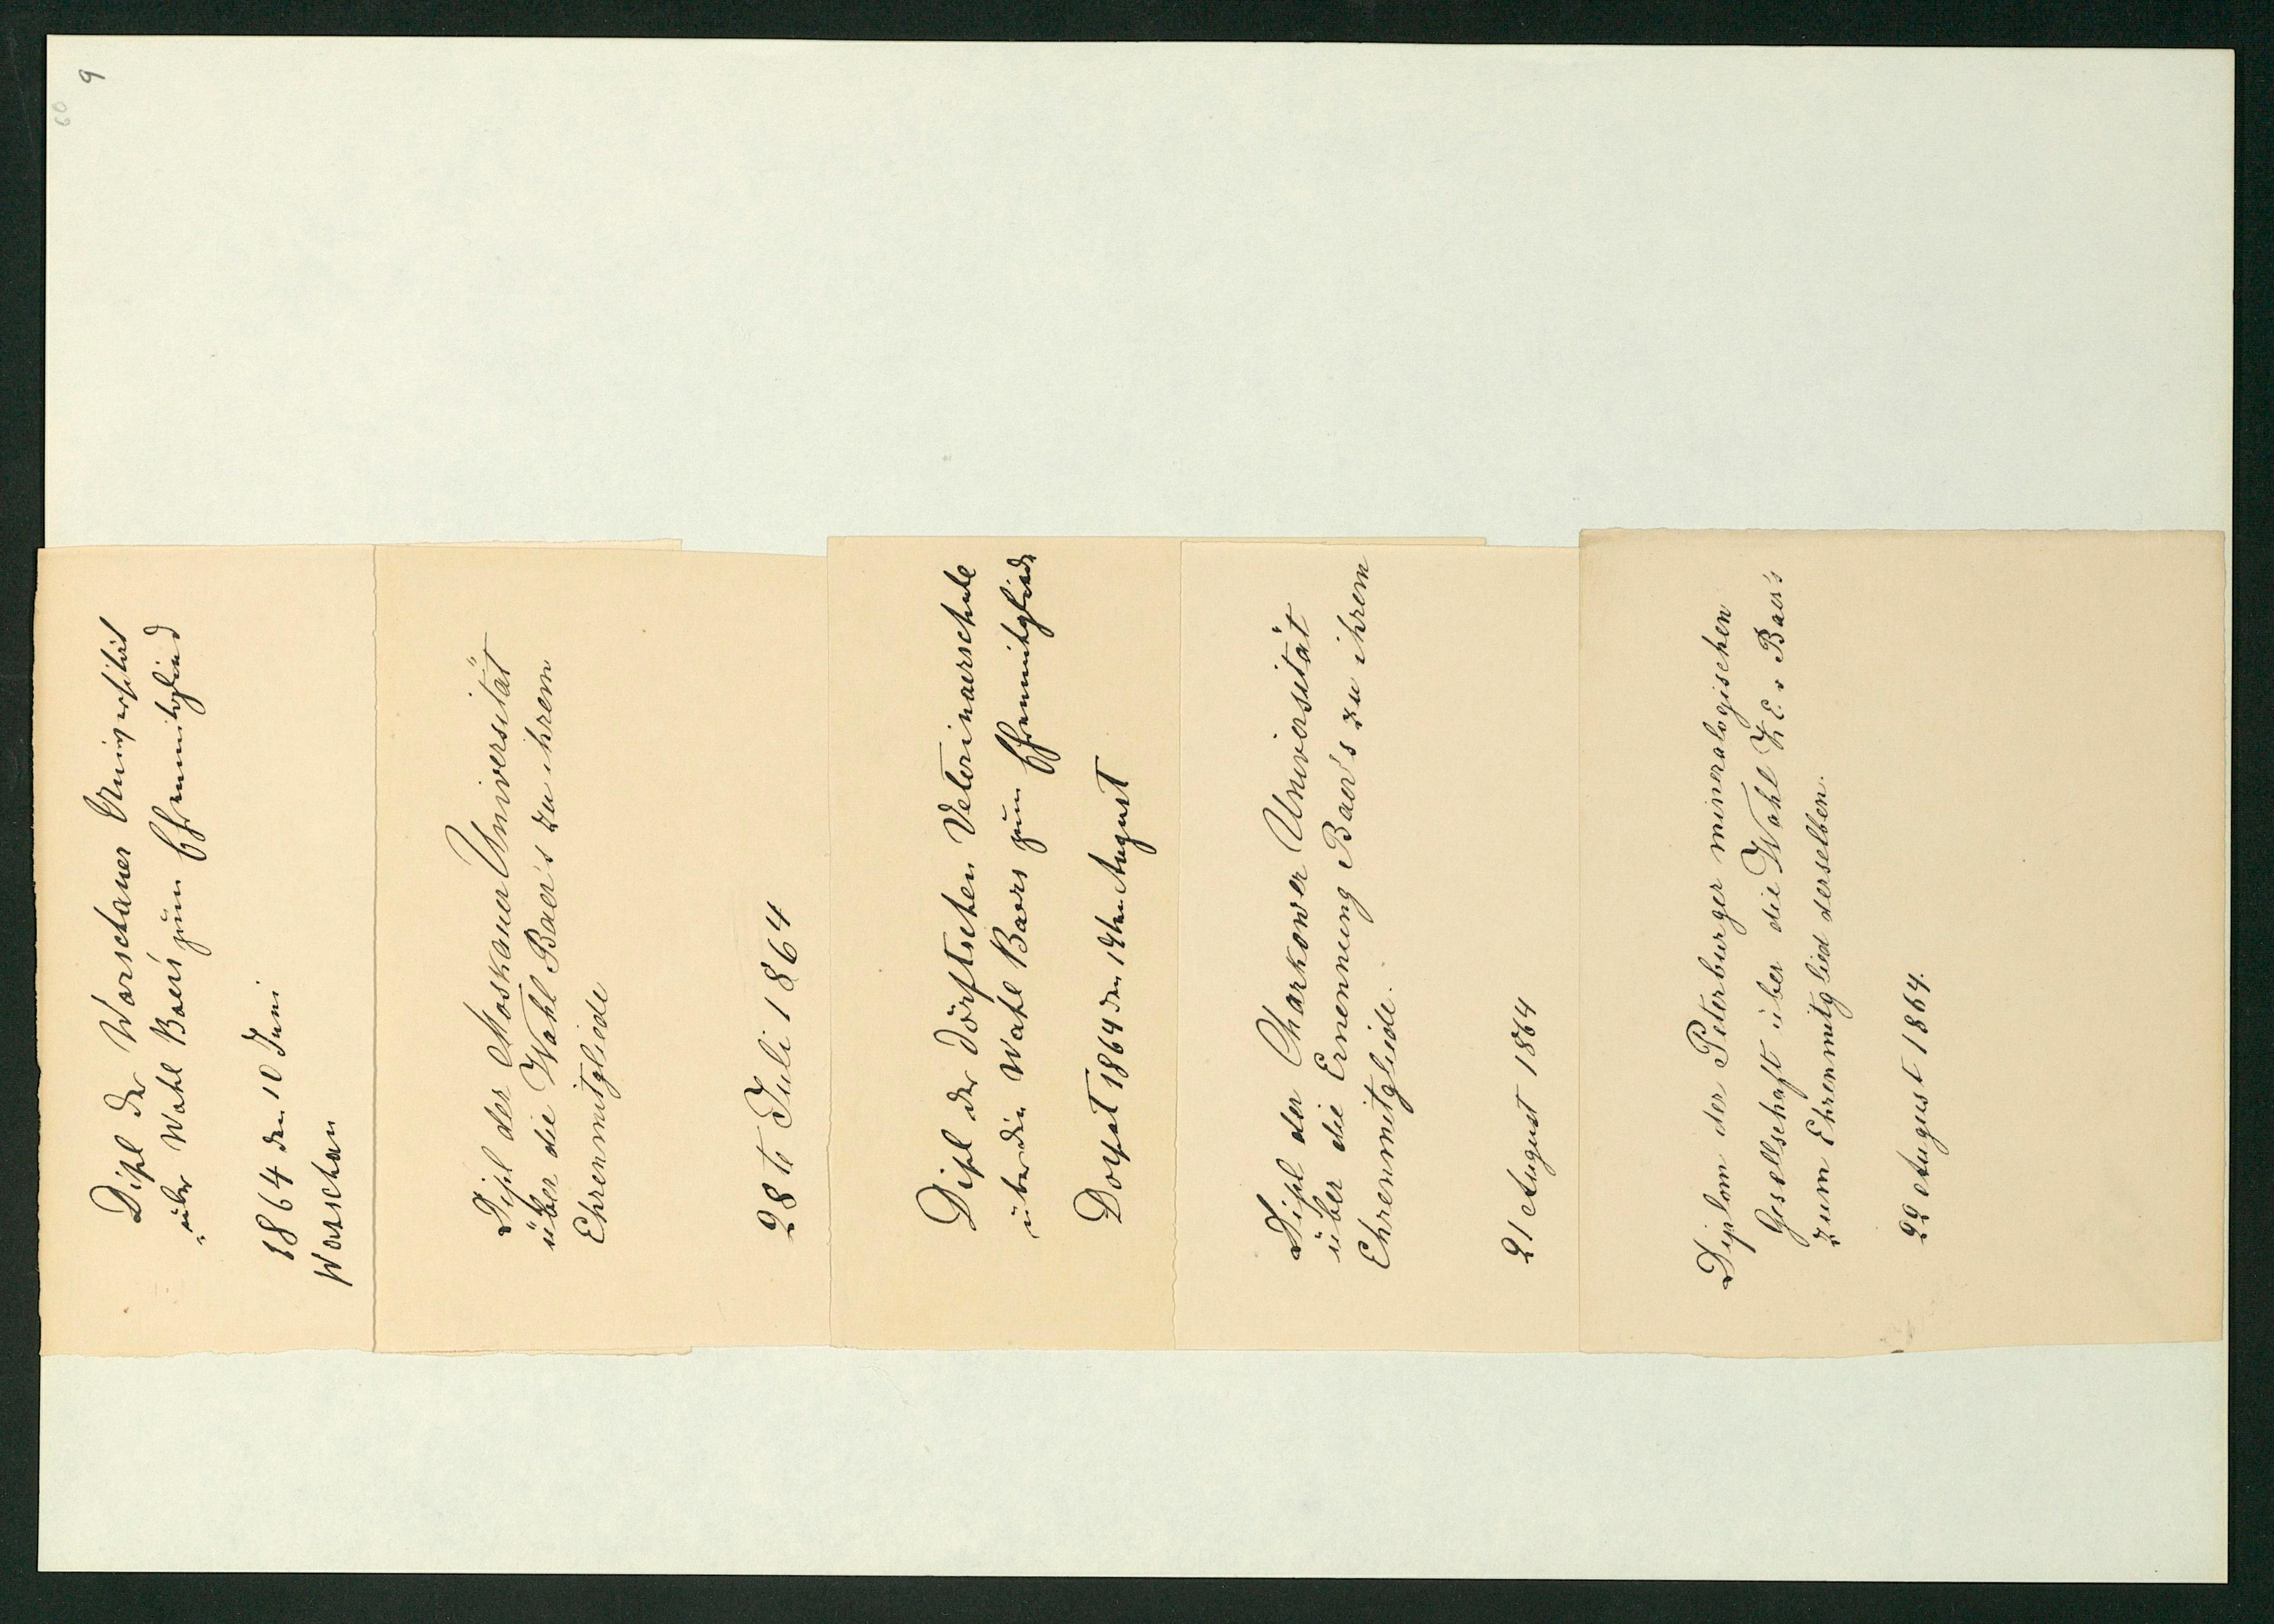 9
60
Dipl der Warschauer Universität
über Wahl Baer's zum Ehrenmitglied
1864 den 10 Juni
Warschau
Dipl der Moskauer Universität
über die Wahl Baer's zu ihrem
Ehrenmitgliede
28 t Juli 1864
Dipl der Dörptschen Veterinaerschule
über die Wahl Baers zum Ehrenmitglied
Dorpat 1864 den 19ten August
Dipl der Charkower Universität
über die Ernennung Baer's zu ihrem
Ehrenmitgliede.
21 August 1864
Diplom der Peterburger mineralogischen
Gesellschaft über die Wahl K. E. v Baer's
zum Ehrenmitglied derselben.
22 August 1864.